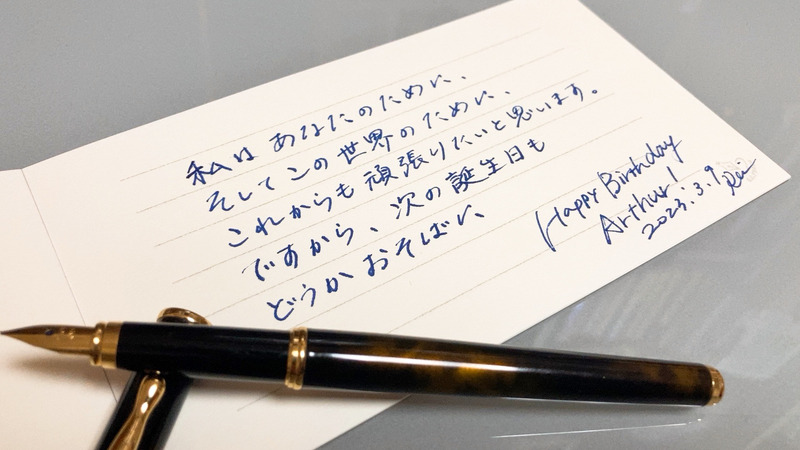 私はあなたのために、
そしてこの世界のために、
これからも頑張りたいと思います。
ですから、次の誕生日も
どうかおそばに
Happy Birthday
Arthur!
2023.3.9